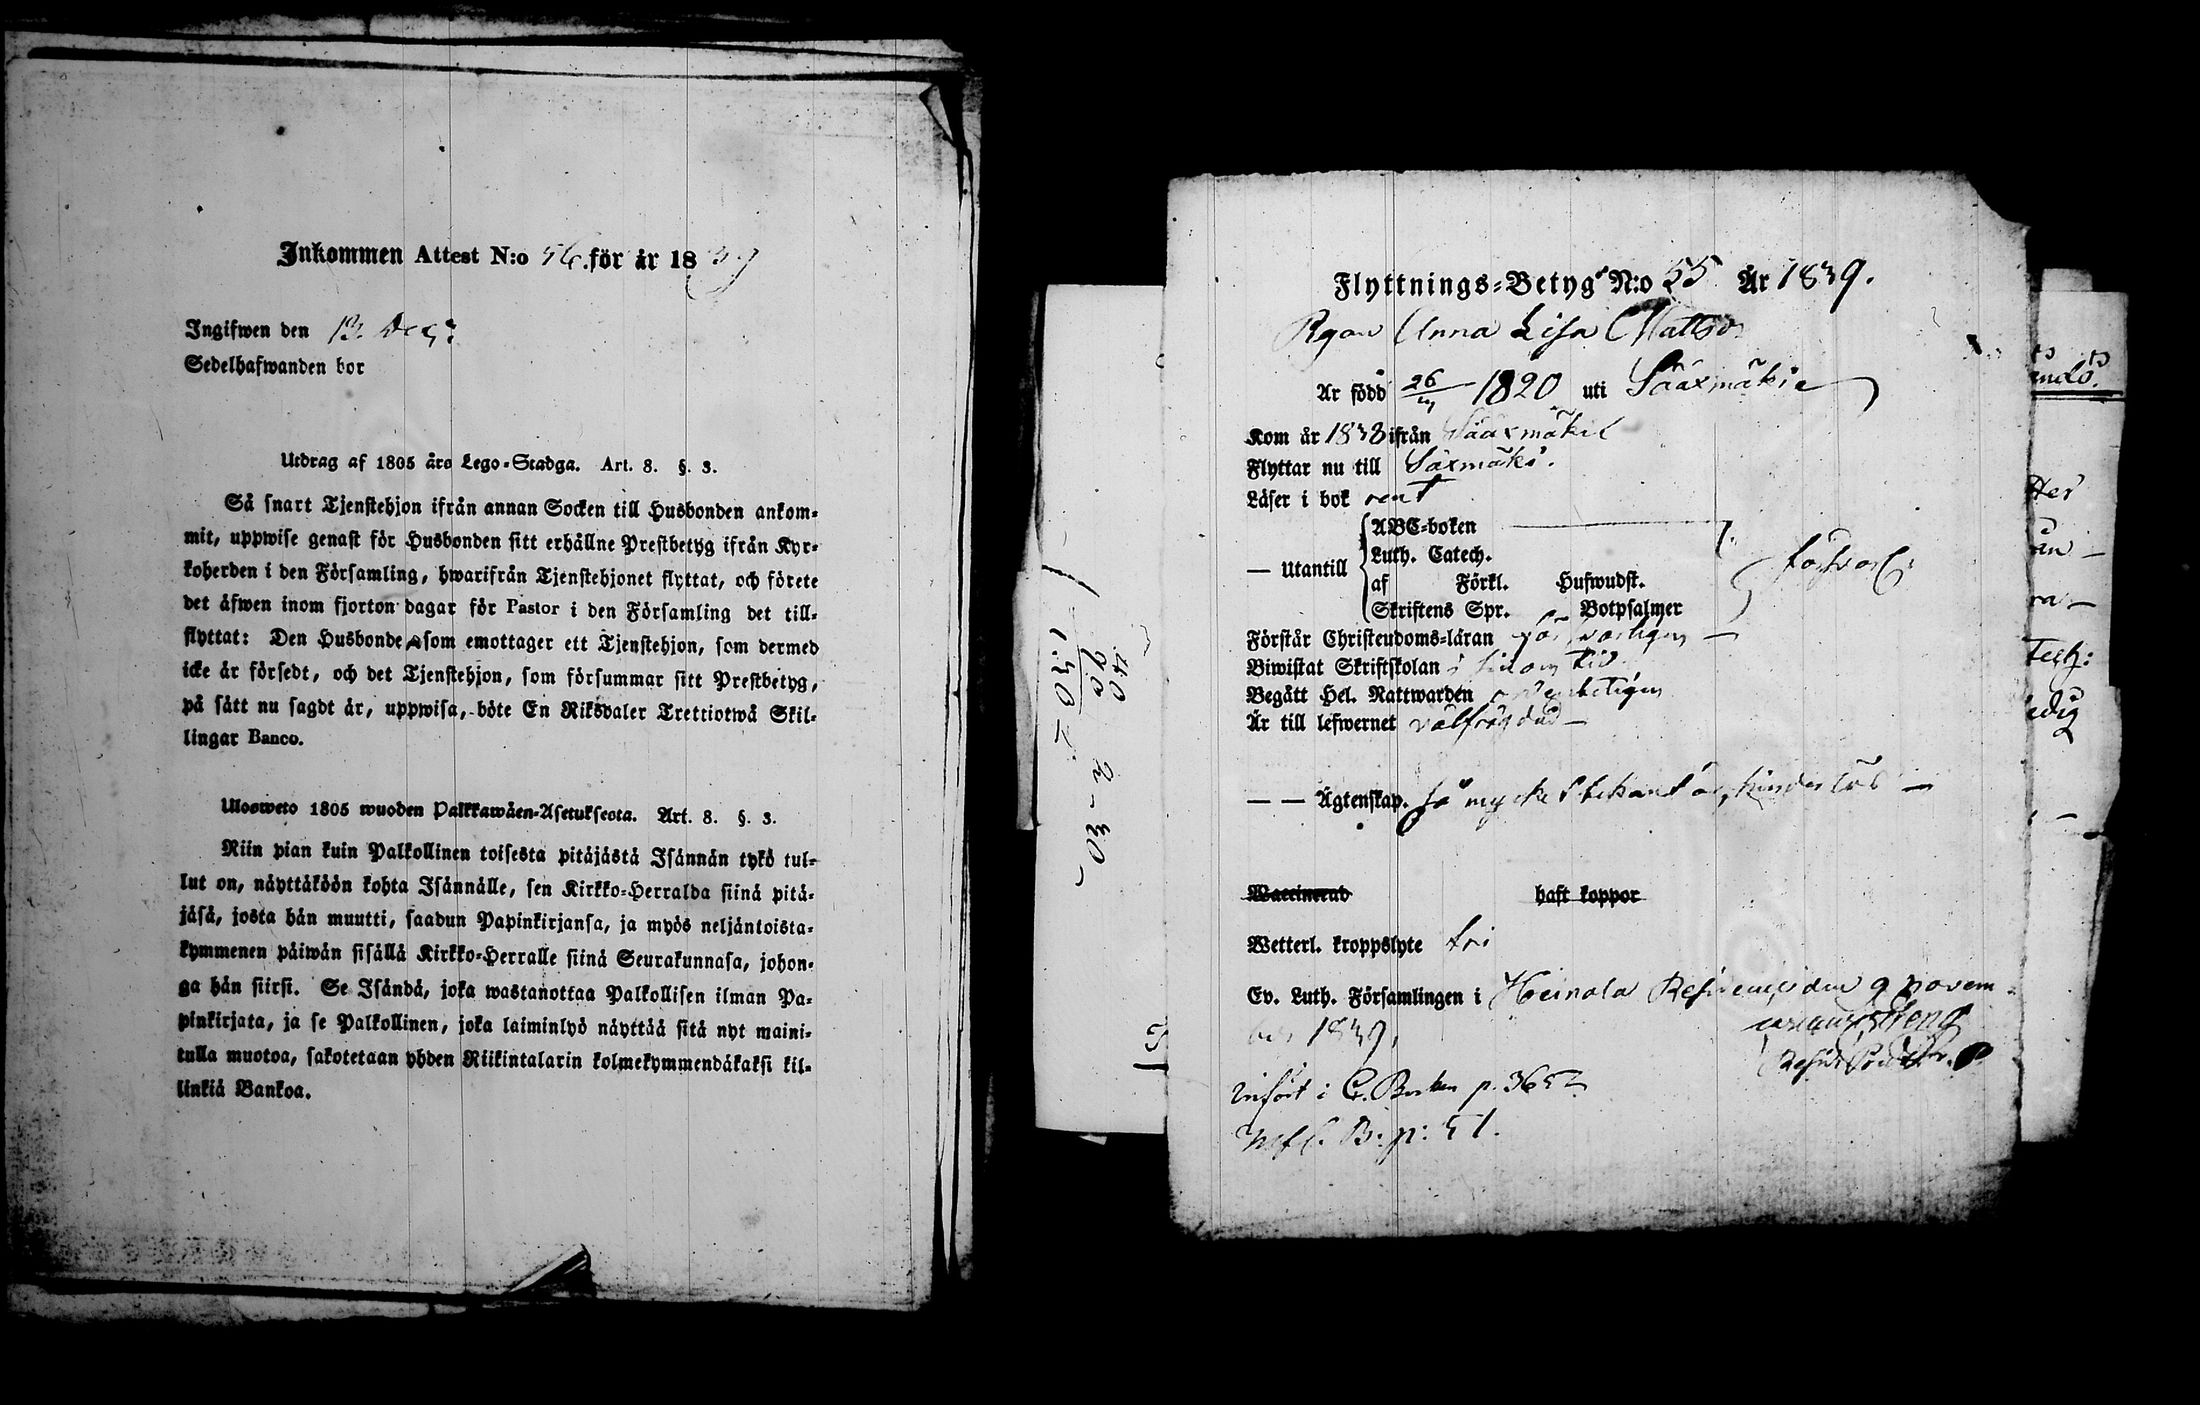 Inkommen Attest N:o 56. för år 1839
Ingifwen den 13. Dec:
Sedelhafwanden bor
Utdrag af 1805 års Lego-Stadga. Art. 8. §. 3.
Så snart Tjenstehjon ifrån annan Socken till Husbonden ankom-
mit, uppwise genast för Husbonden sitt erhållne Prestbetyg ifrån Kyr-
koherden i den Församling, hwarifrån Tjenstehjonet flyttat, och förete
det äfwen inom fjorton dagar för Pastor i den Församling det till-
flyttat: Den Husbonde som emottager ett Tjenstehjon, som dermed
icke är försedt, och det Tjenstehjon, som försummar sitt Prestbetyg,
på sätt nu sagdt är, uppwisa, böte En Riksdaler Trettiotwå Skil-
lingar Banco.
Ulosweto 1805 wuoden Palkkawäen-Asetuksesta. Art. 8. §. 3.
Niin pian kuin Palkollinen toisesta pitäjästä Isännän tykö tul-
lut on, näyttäköön kohta Isännälle, sen Kirkko-Herralda siinä pitä-
jäsä, josta hän muutti, saadun Papinkirjansa, ja myös neljäntoista-
kymmenen päiwän sisällä Kirkko-Herralle siinä Seurakunnasa, johon-
ga hän siirsi. Se Isändä, joka wastanottaa Palkollisen ilman Pa-
pinkirjata, ja se Palkollinen, joka laiminlyö näyttää sitä nyt maini-
tulla muotoa, sakotetaan yhden Riikintalarin kolmekymmendäkaksi kil-
linkiä Bankoa.
Flyttnings-Betyg N:o 55 År 1839.
Pgan Anna Lisa Mattsdr
Är född 26 1820 uti Sääxmäkie
Kom år 1838 ifrån Sääxmäkie
Flyttar nu till Säxmäki.
Läser i bok rent
— Utantill ABC-boken
Luth. Catech.
af Förkl. Hufwudst. försvarl:
Skriftens Spr. Botpsalmer
Förstår Christendoms-läran försvarligen —
Biwistat Skriftskolan i sinom tid
Begått Hel. Nattwarden ordenteligen
Är till lefwernet välfrägdad —
— — Ägtenskap. så mycket bekant är, hinderlös —
Waccinerad haft koppor
Wetterl. kroppslyte fri
Ev. Luth. Församlingen i Heinola Residence den 9 novem-
ber 1839.
Infört i C. Boken p. 365
Inf C. B: p: 51.